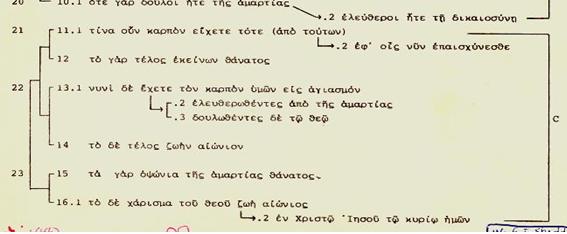 20 10.1 ὅτε γὰρ δοῦλοι ἦτε τῆς ἁμαρτίας
.2 ἐλεύθεροι ἦτε τῇ δικαιοσύνῃ
21 11.1 τίνα οὖν καρπὸν εἴχετε τότε (ἀπὸ τούτων)
.2 ἐφ' οἷς νῦν ἐπαισχύνεσθε
12 τὸ γὰρ τέλος ἐκείνων θάνατος
C
22 13.1 νυνὶ δὲ ἔχετε τὸν καρπὸν ὑμῶν εἰς ἁγιασμόν
.2 ἐλευθερωθέντες ἀπὸ τῆς ἁμαρτίας
.3 δουλωθέντες δὲ τῷ θεῷ
14 τὸ δὲ τέλος ζωὴν αἰώνιον
23 15 τὰ γὰρ ὀψώνια τῆς ἁμαρτίας θάνατος
16.1 τὸ δὲ χάρισμα τοῦ θεοῦ ζωὴ αἰώνιος
.2 ἐν Χριστῷ Ἰησοῦ τῷ κυρίῳ ἡμῶν